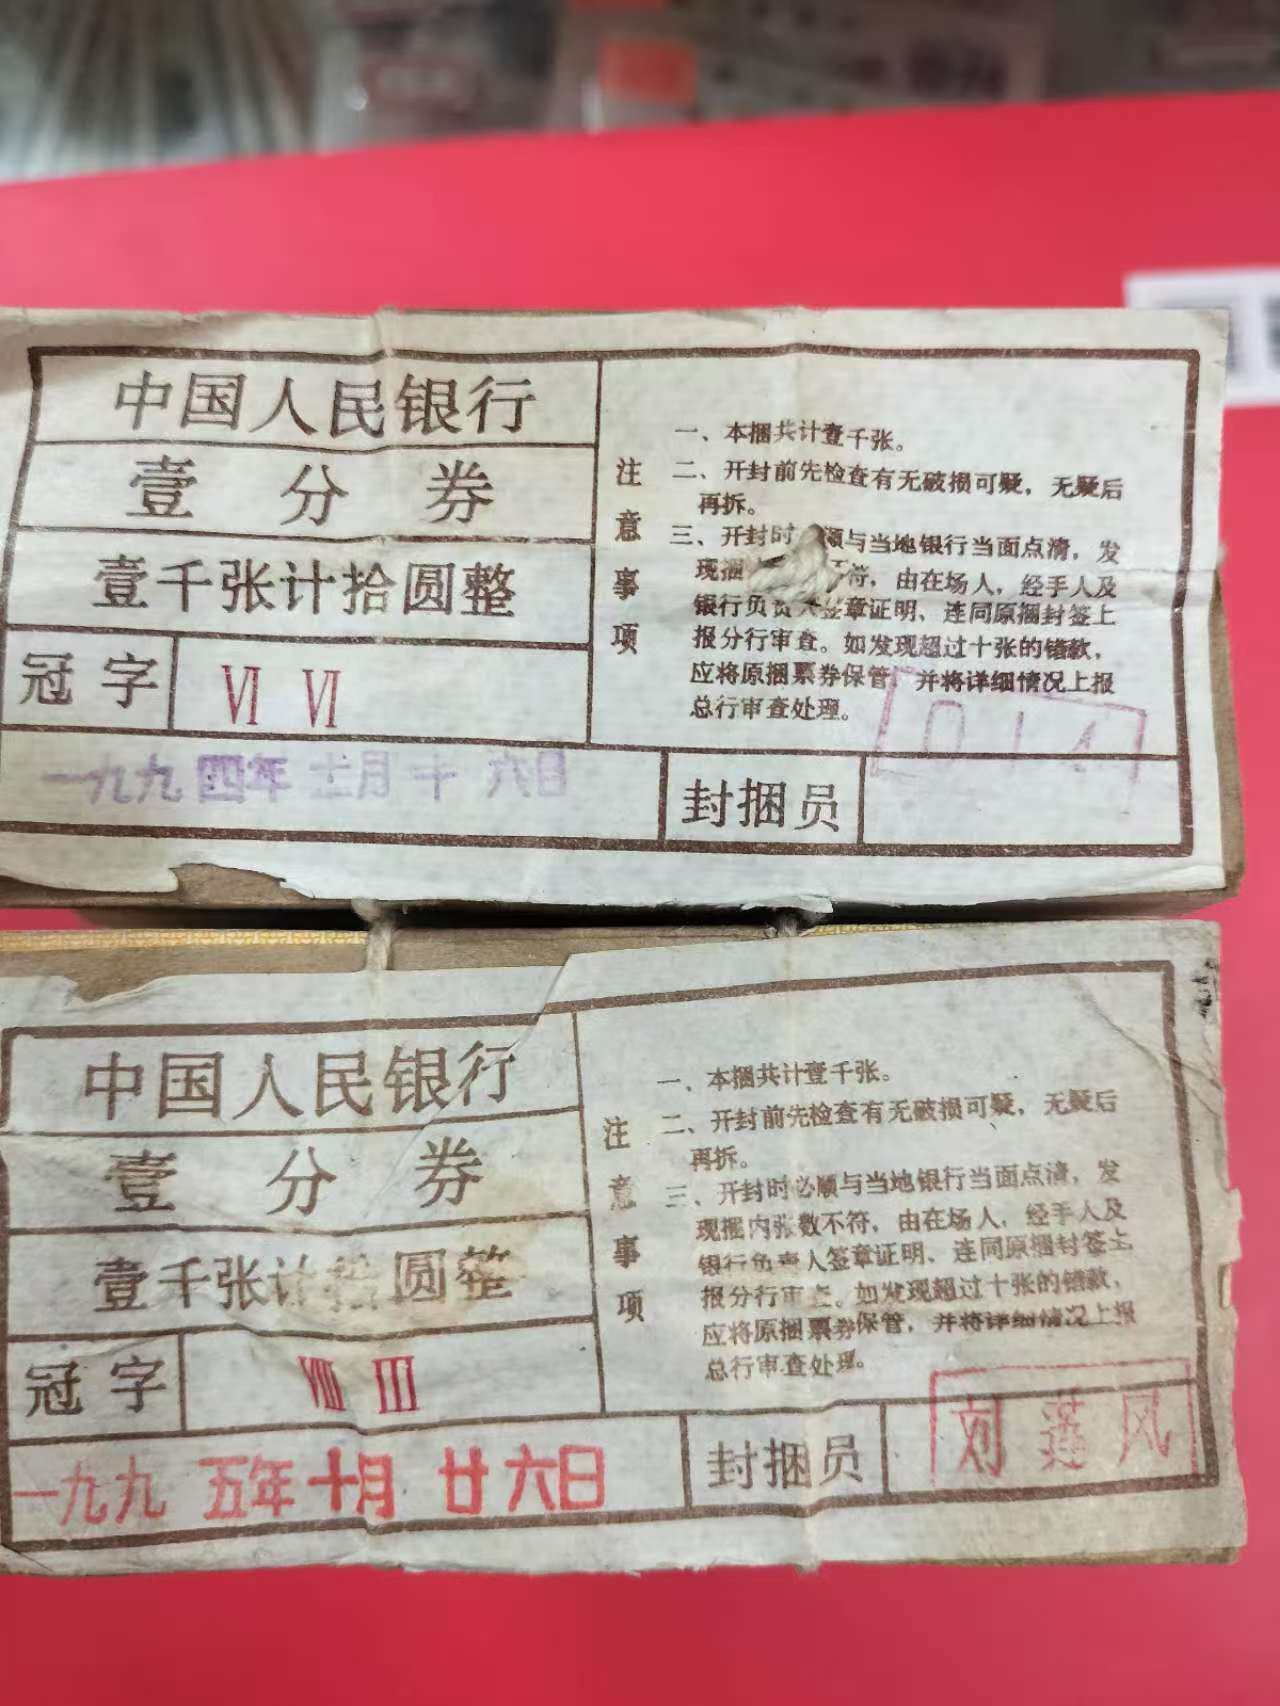 中国人民银行
壹分券
壹千张计拾圆整
冠字 Ⅵ Ⅵ
一九九四年 十六日
注意事项
一、本捆共计壹千张。
二、开封前先检查有无破损可疑，无疑后
再拆。
三、开封时 须与当地银行当面点清，发
现捆 不符，由在场人，经手人及
银行负责人签章证明、连同原捆封签上
报分行审查。如发现超过十张的错款，
应将原捆票券保管，并将详细情况上报
总行审查处理。
封捆员
014
中国人民银行
壹分券
壹千张计拾圆整
冠字 Ⅷ Ⅲ
一九九五年十月廿六日
注意事项
一、本捆共计壹千张。
二、开封前先检查有无破损可疑，无疑后
再拆。
三、开封时必顺与当地银行当面点清，发
现捆内张数不符，由在场人，经手人及
银行负责人签章证明、连同原捆封签上
报分行审查。如发现超过十张的错款，
应将原捆票券保管，并将详细情况上报
总行审查处理。
封捆员
刘莲风